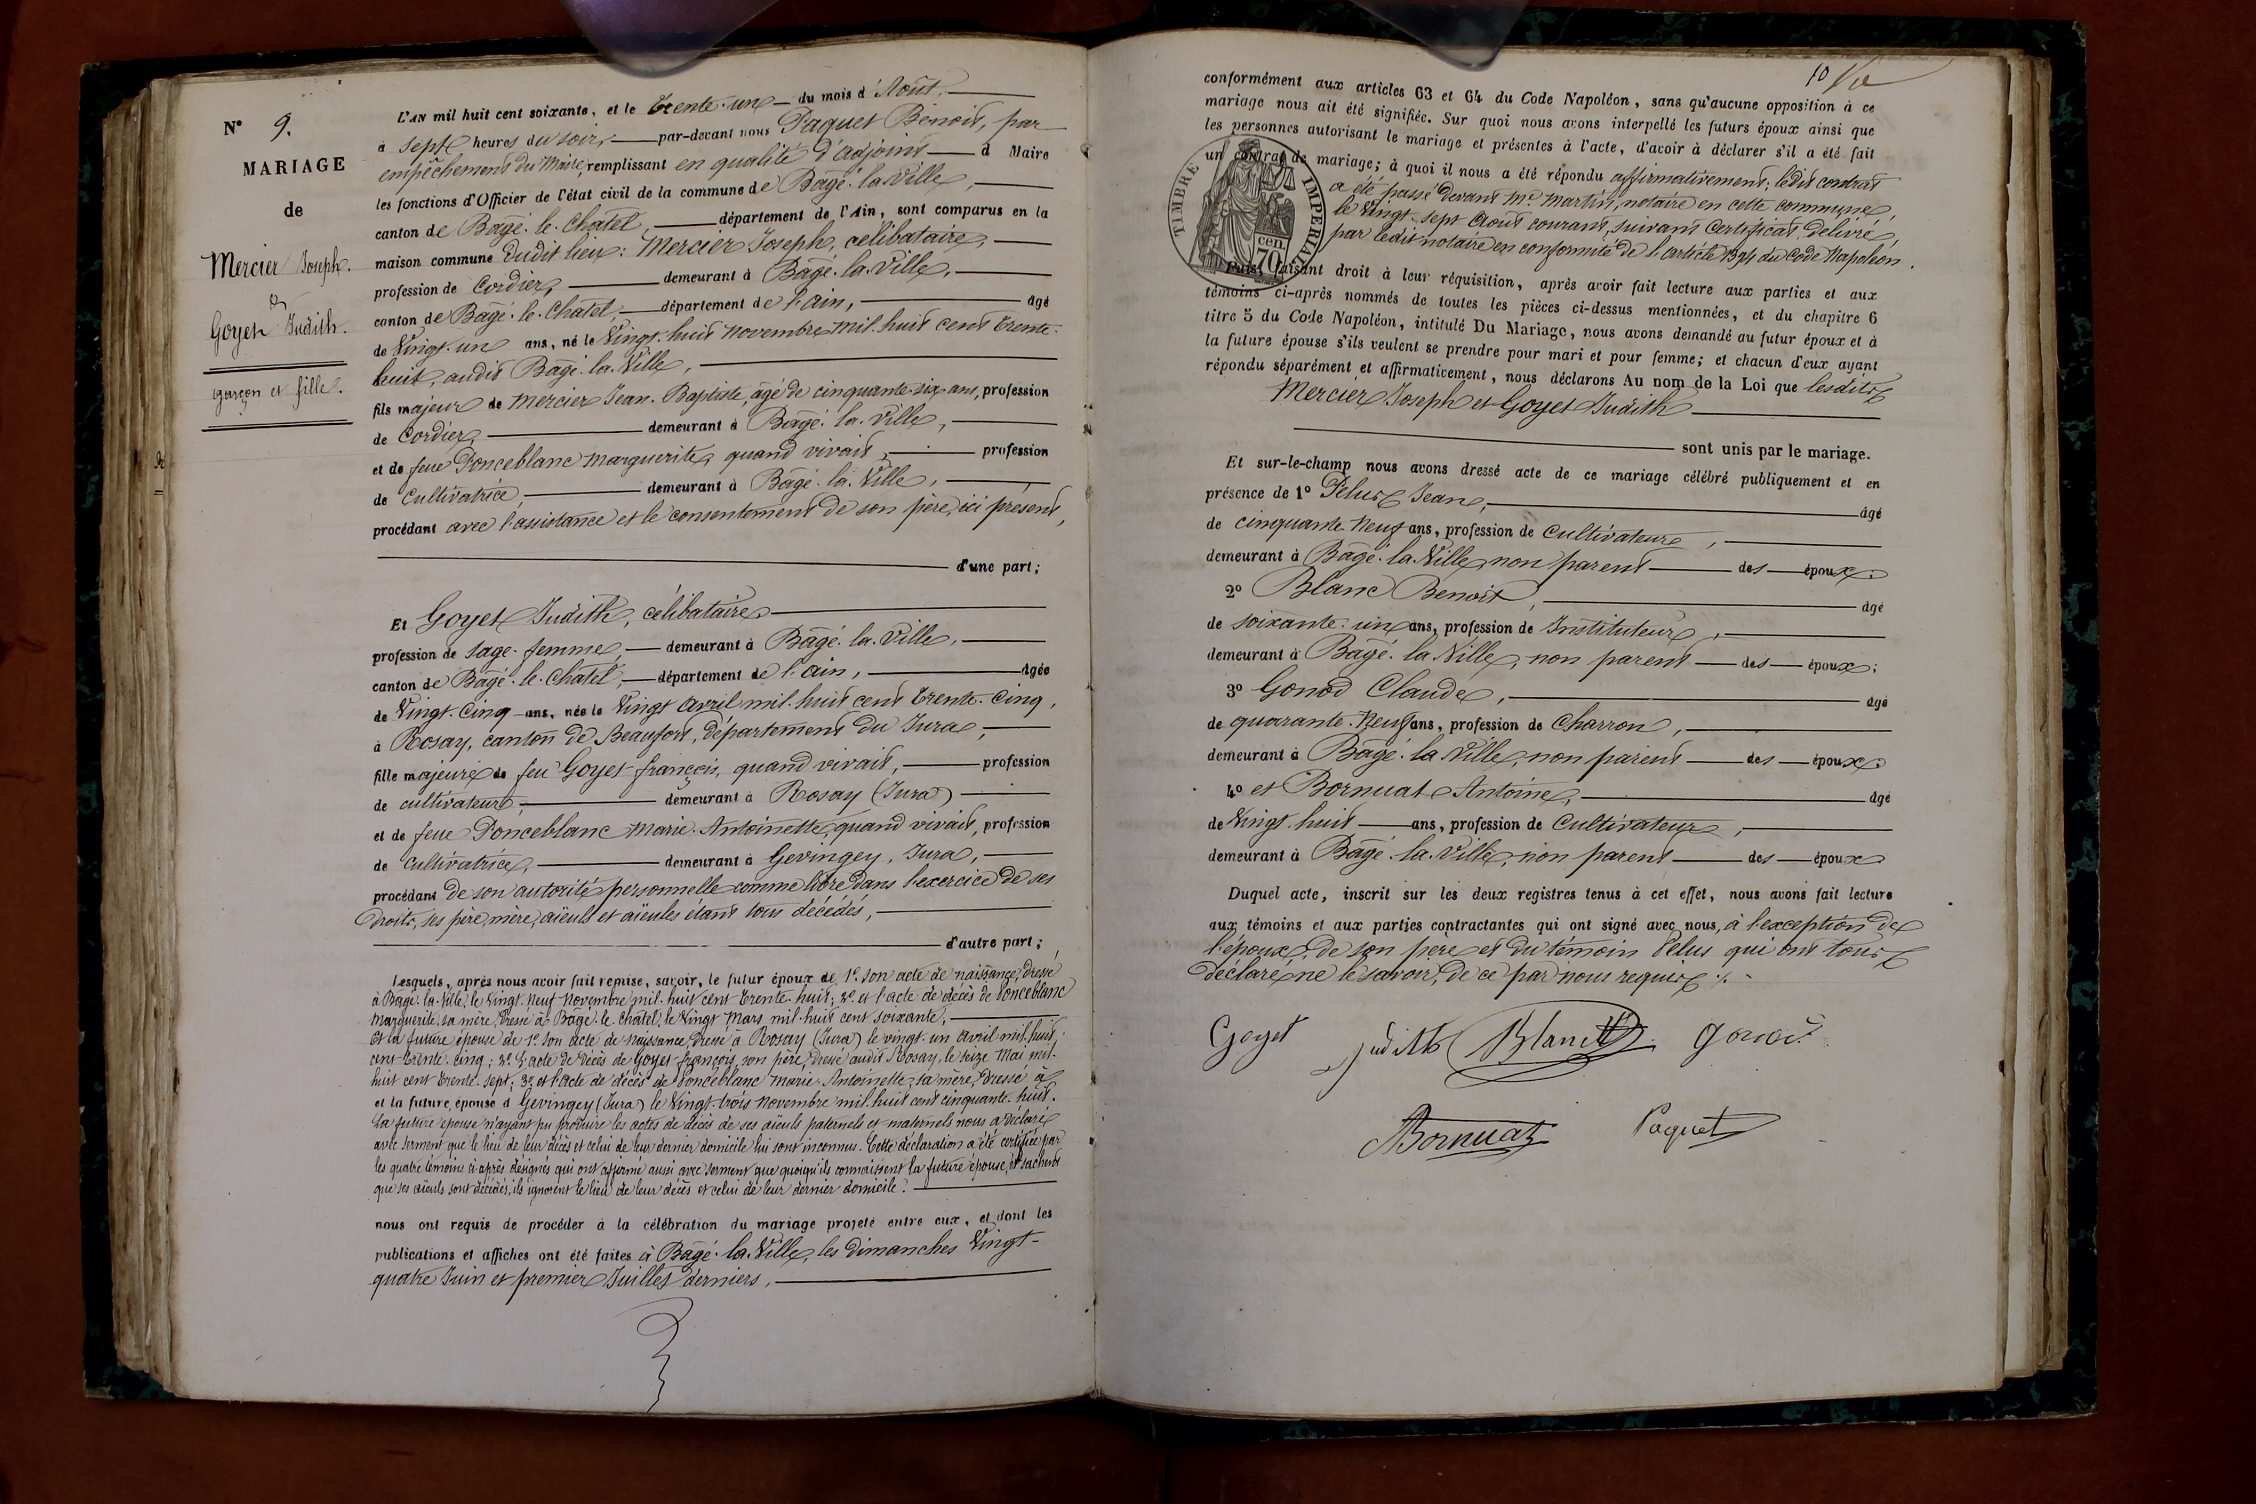 N° 9.
MARIAGE
de
Mercier Joseph.
et
Goyet Judith.
garçon et fille.
L'AN mil huit cent soixante, et le trente-un du mois d'Août,
à sept heures du soir, par-devant nous Paquet Benoit, par
empêchement du Maire, remplissant en qualité d'adjoint à Maire
les fonctions d'Officier de l'état civil de la commune de Bâgé-la-Ville,
canton de Bâgé-le-Châtel, département de l'Ain, sont comparus en la
maison commune dudit lieu: Mercier Joseph, célibataire,
profession de Cordier, demeurant à Bâgé-la-Ville,
canton de Bâgé-le-Châtel, département de l'ain, âgé
de Vingt-un ans, né le Vingt-huit novembre mil-huit cent trente-
huit, audit Bâgé-la-Ville,
fils majeur de Mercier Jean-Baptiste, âgé de cinquante-six ans, profession
de Cordier, demeurant à Bâgé-la-Ville,
et de feue Ponceblanc Marguerite, quand vivait, profession
de Cultivatrice, demeurant à Bâgé-la-Ville,
procédant avec l'assistance et le consentement de son père, ici présent,
d'une part;
Et Goyet Judith, célibataire
profession de Sage-femme, demeurant à Bâgé-la-Ville,
canton de Bâgé-le-Châtel, département de l'ain, âgée
de Vingt-Cinq ans, née le Vingt Avril mil-huit cent trente-Cinq,
à Rosay, canton de Beaufort, département du Jura,
fille majeure de feu Goyet françois, quand vivait, profession
de cultivateur demeurant à Rosay (Jura)
et de feue Ponceblanc Marie-Antoinette quand vivait, profession
de Cultivatrice, demeurant à Gevingey, Jura,
procédant de son autorité personnelle comme libre dans l'exercice de ses
droits, ses père, mère, aïeuls et aïeules étant tous décédés,
d'autre part;
Lesquels, après nous avoir fait remise, savoir, le futur époux de 1° son acte de naissance, dressé
à Bâgé-la-Ville, le Vingt-neuf Novembre mil-huit cent trente-huit; 2° et l'acte de décès de Ponceblanc
Marguerite, sa mère, dressé à Bâgé-le-Châtel, le Vingt Mars mil-huit cent soixante;
Et la future épouse de 1° son acte de naissance, dressé à Rosay (Jura) le vingt-un avril mil-huit
cent trente-cinq; 2° L'acte de décès de Goyet françois, son père, dressé audit Rosay, le seize Mai mil-
huit cent trente-sept; 3° et l'acte de décès de Ponceblanc Marie-Antoinette, sa mère, dressé à
et la future épouse d Gevingey (Jura) le Vingt-trois Novembre mil-huit cent cinquante-huit.
La future épouse n'ayant pu produire les actes de décès de ses aïeuls paternels et maternels nous a déclaré
avec serment que le lieu de leur décès et celui de leur dernier domicile lui sont inconnus. Cette déclaration a été certifiée par
les quatre témoins ci-après désignés qui ont affirmé aussi avec serment que quoiqu'ils connaissent la future épouse, et sachent
que ses aïeuls sont décédés, ils ignorent le lieu de leur décès et celui de leur dernier domicile.
nous ont requis de procéder à la célébration du mariage projeté entre eux, et dont les
publications et affiches ont été faites à Bâgé-la-Ville, les dimanches Vingt-
quatre Juin et premier Juillet derniers,
10
conformément aux articles 63 et 64 du Code Napoléon, sans qu'aucune opposition à ce
mariage nous ait été signifiée. Sur quoi nous avons interpellé les futurs époux ainsi que
les personnes autorisant le mariage et présentes à l'acte, d'avoir à déclarer s'il a été fait
un contrat de mariage; à quoi il nous a été répondu affirmativement; ledit contrat
a été passé devant Me Martin, notaire en cette commune,
le Vingt-sept Août courant, suivant Certificat délivré
par ledit notaire en conformité de l'article 1394 du Code Napoléon.
TIMBRE IMPERIAL
70 cen.
Puis, faisant droit à leur réquisition, après avoir fait lecture aux parties et aux
témoins ci-après nommés de toutes les pièces ci-dessus mentionnées, et du chapitre 6
titre 5 du Code Napoléon, intitulé Du Mariage, nous avons demandé au futur époux et à
la future épouse s'ils veulent se prendre pour mari et pour femme; et chacun d'eux ayant
répondu séparément et affirmativement, nous déclarons Au nom de la Loi que lesdits
Mercier Joseph et Goyet Judith
sont unis par le mariage.
Et sur-le-champ nous avons dressé acte de ce mariage célébré publiquement et en
présence de 1° Pelus Jean, âgé
de cinquante-neuf ans, profession de Cultivateur,
demeurant à Bâgé-la-Ville, non parent des époux.
2° Blanc Benoit, âgé
de soixante-un ans, profession de Instituteur,
demeurant à Bâgé-la-Ville, non parent des époux;
3° Gonod Claude, âgé
de quarante-neuf ans, profession de Charron,
demeurant à Bâgé-la-Ville, non parent des époux.
4° et Bornuat Antoine, âgé
de Vingt-huit ans, profession de Cultivateur,
demeurant à Bâgé-la-Ville, non parent des époux
Duquel acte, inscrit sur les deux registres tenus à cet effet, nous avons fait lecture
aux témoins et aux parties contractantes qui ont signé avec nous, à l'exception de
l'époux, de son père et du témoin Pelus qui ont tous
déclaré ne le savoir, de ce par nous requis
Goyet Judith Blanc Gonod
Bornuat Paquet